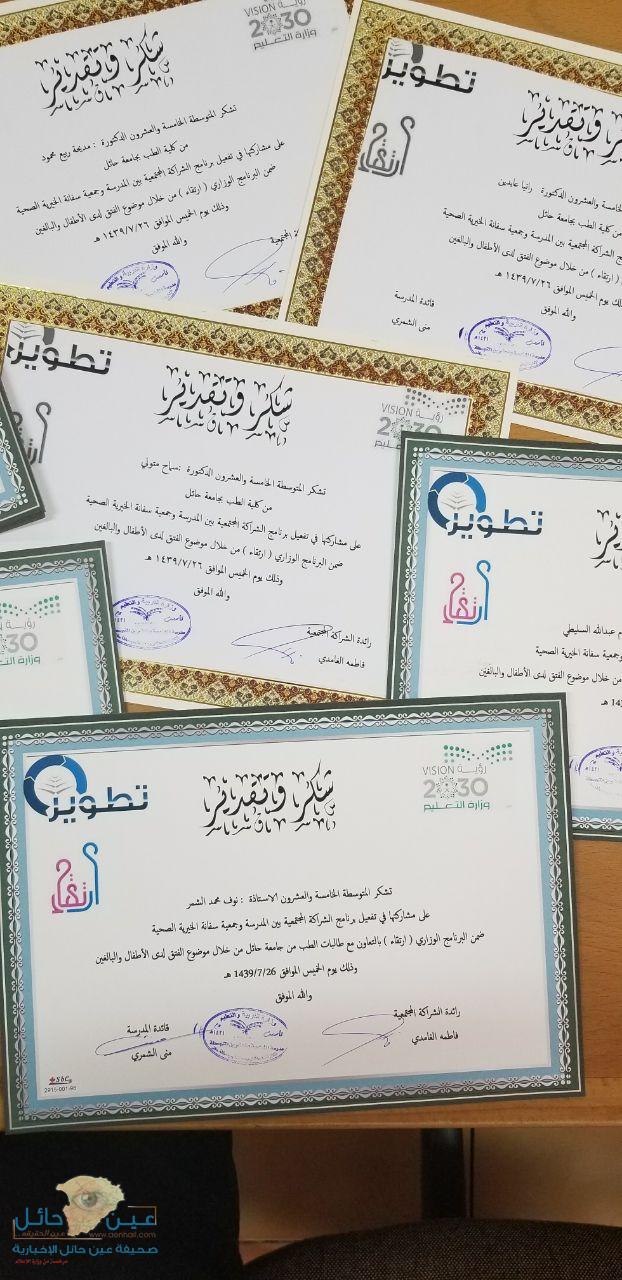 رؤية VISION
2030
وزارة التعليم
شكر وتقدير
تشكر المتوسطة الخامسة والعشرون الدكتورة : مديحة ربيع محمود
من كلية الطب بجامعة حائل
على مشاركتها في تفعيل برنامج الشراكة المجتمعية بين المدرسة وجمعية سفانة الخيرية الصحية
ضمن البرنامج الوزاري ( ارتقاء ) من خلال موضوع الفتق لدى الأطفال والبالغين
وذلك يوم الخميس الموافق ١٤٣٩/٧/٢٦ هـ
والله الموفق
المجتمعية
تطوير
ارتقاء
شكر وتقدير
الخامسة والعشرون الدكتورة رانيا عابدين
من كلية الطب بجامعة حائل
برنامج الشراكة المجتمعية بين المدرسة وجمعية سفانة الخيرية الصحية
( ارتقاء ) من خلال موضوع الفتق لدى الأطفال والبالغين
ذلك يوم الخميس الموافق ١٤٣٩/٧/٢٦ هـ
والله الموفق
قائدة المدرسة
منى الشمري
تطوير
شكر وتقدير
رؤية VISION
تشكر المتوسطة الخامسة والعشرون الدكتورة :سماح متولي
من كلية الطب بجامعة حائل
على مشاركتها في تفعيل برنامج الشراكة المجتمعية بين المدرسة وجمعية سفانة الخيرية الصحية
ضمن البرنامج الوزاري ( ارتقاء ) من خلال موضوع الفتق لدى الأطفال والبالغين
وذلك يوم الخميس الموافق ١٤٣٩/٧/٢٦ هـ
والله الموفق
رائدة الشراكة المجتمعية
فاطمه الغامدي
تطوير
ارتقاء
عبدالله السليطي
وجمعية سفانة الخيرية الصحية
من خلال موضوع الفتق لدى الأطفال والبالغين
رؤية
2030
وزارة التعليم
تطوير
ارتقاء
شكر وتقدير
رؤية VISION
2030
وزارة التعليم
تشكر المتوسطة الخامسة والعشرون الاستاذة : نوف محمد الشمر
على مشاركتها في تفعيل برنامج الشراكة المجتمعية بين المدرسة وجمعية سفانة الخيرية الصحية
ضمن البرنامج الوزاري ( ارتقاء ) بالتعاون مع طالبات الطب من جامعة حائل من خلال موضوع الفتق لدى الأطفال والبالغين
وذلك يوم الخميس الموافق 1439/7/26 هـ
والله الموفق
رائدة الشراكة المجتمعية
فاطمه الغامدي
قائدة المدرسة
منى الشمري
عين حائل
عين الحقيقة
www.aenhail.com
صحيفة عين حائل الإخبارية